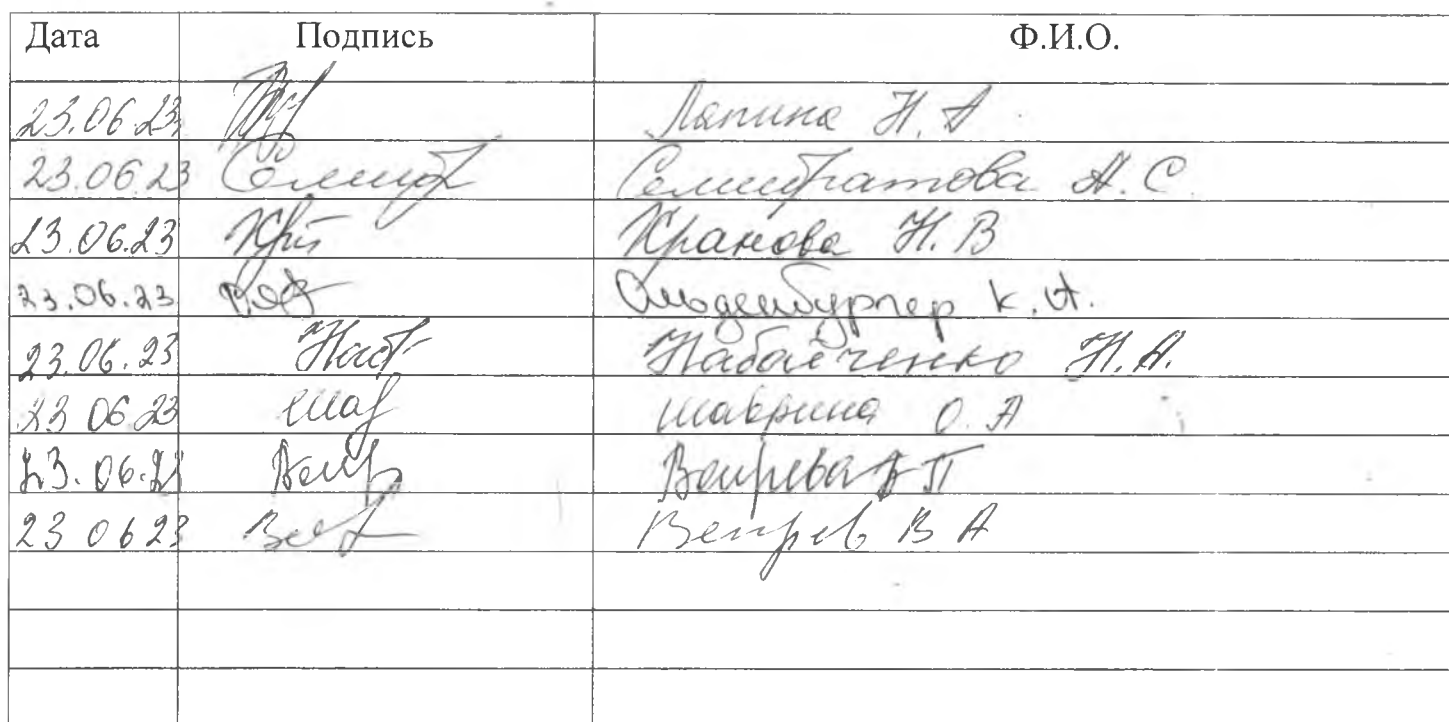 Дата Подпись Ф.И.О.
23.06.23 Лапина Н.А
23.06.23 Семибратова А.С
23.06.23 Хранова Н.В
23.06.23 К.А.
23.06.23 Наб Набойченко Н.А.
23 06 23 Шав Шаврина О.А
23.06.23 Вепр Вепрева П
23 06 23 Вепрев В А